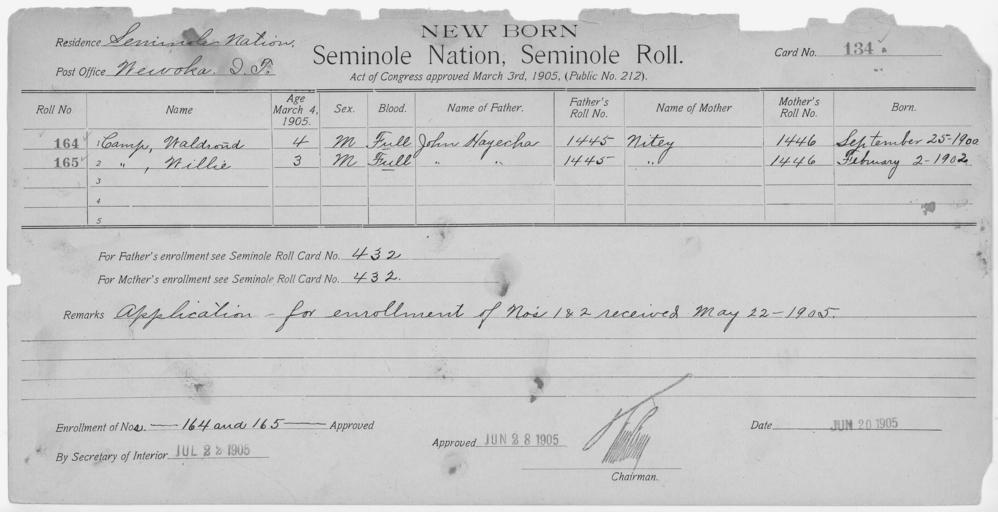 NEW BORN
Residence Seminole Nation.
Seminole Nation, Seminole Roll.
Card No. 134
Post Office Wewoka. I. T.
Act of Congress approved March 3rd, 1905, (Public No. 212).
Roll No Name Age March 4, 1905. Sex. Blood. Name of Father. Father's Roll No. Name of Mother Mother's Roll No. Born.
164 1 Camp, Waldroud 4 M Full John Hayecha 1445 Nitey 1446 September 25-1900
165 2 " , Willie 3 M Full " " 1445 " 1446 February 2-1902
3
4
5
For Father's enrollment see Seminole Roll Card No. 432
For Mother's enrollment see Seminole Roll Card No. 432.
Remarks Application - for enrollment of Nos 1 & 2 received May 22-1905.
Enrollment of Nos. — 164 and 165 — Approved
Date JUN 20 1905
Approved JUN 28 1905
By Secretary of Interior JUL 22 1905
Chairman.